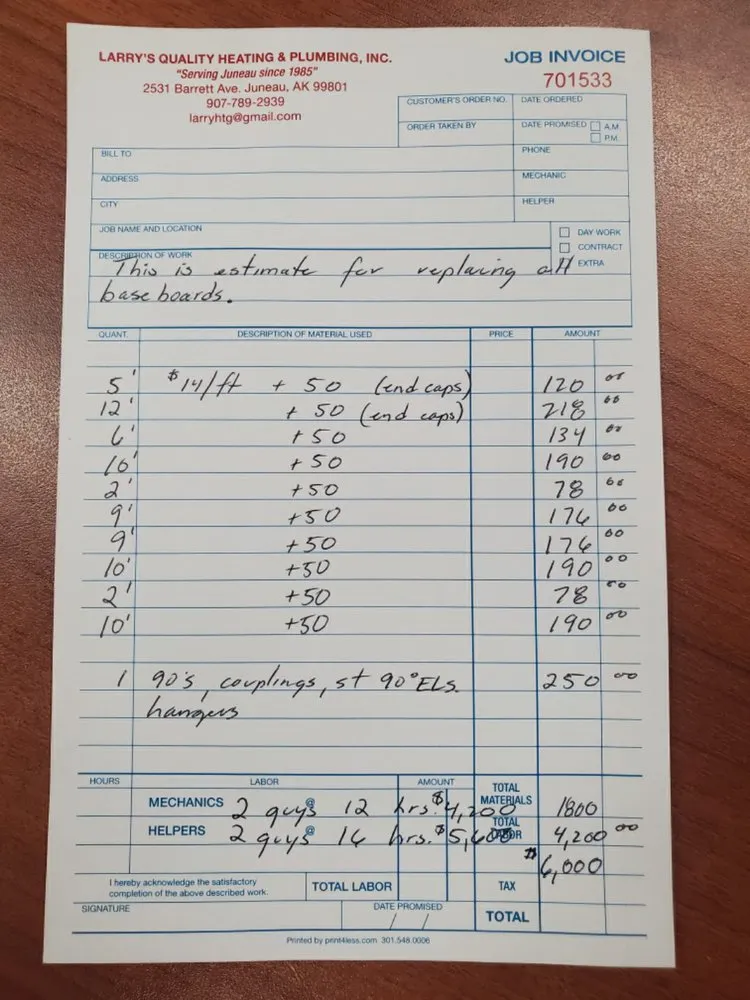 LARRY'S QUALITY HEATING & PLUMBING, INC.
"Serving Juneau since 1985"
2531 Barrett Ave. Juneau, AK 99801
907-789-2939
larryhtg@gmail.com
JOB INVOICE
701533
CUSTOMER'S ORDER NO. DATE ORDERED
ORDER TAKEN BY DATE PROMISED A.M.
P.M.
BILL TO PHONE
ADDRESS MECHANIC
CITY HELPER
JOB NAME AND LOCATION
DAY WORK
CONTRACT
EXTRA
DESCRIPTION OF WORK
This is estimate for replacing all
baseboards.
QUANT. DESCRIPTION OF MATERIAL USED PRICE AMOUNT
5' $14/ft + 50 (end caps) 120 00
12' + 50 (end caps) 218 00
6' +50 134 00
10' +50 190 00
2' +50 78 00
9' +50 176 00
9' +50 176 00
10' +50 190 00
2' +50 78 00
10' +50 190 00
1 90's, couplings, st 90° ELs. 250 00
hangers
HOURS LABOR AMOUNT TOTAL MATERIALS 1800
MECHANICS 2 guys @ 12 hrs. $4,200
HELPERS 2 guys @ 16 hrs. $5,600 TOTAL LABOR 4,200 00
$6,000
I hereby acknowledge the satisfactory
completion of the above described work.
TOTAL LABOR TAX
SIGNATURE DATE PROMISED TOTAL
/ /
Printed by print4less.com 301.548.0006